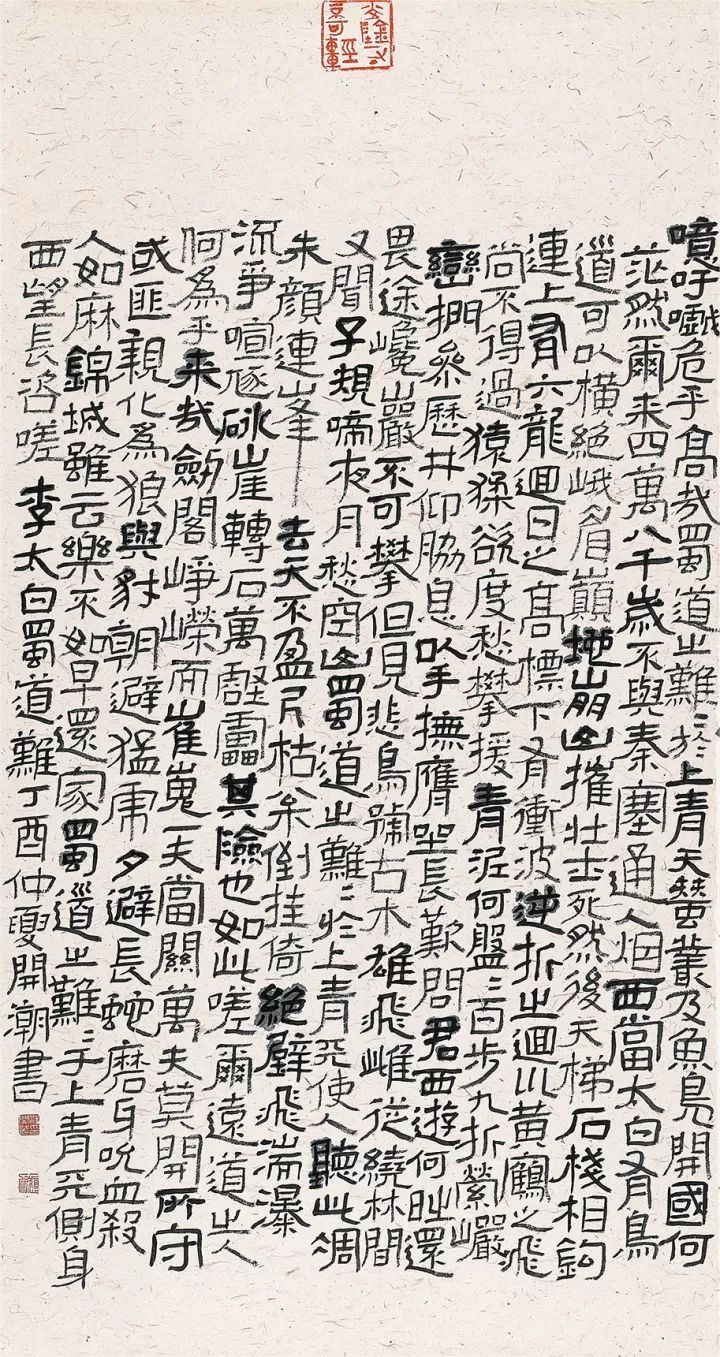 噫吁嚱危乎高哉蜀道之難〻於上青天蠶叢及魚鳧開國何
茫然爾来四萬八千歲不與秦塞通人烟西當太白有鳥
道可以橫絕峨眉巔地崩山摧壯士死然後天梯石棧相鈎
連上有六龍迴日之高標下有衝波逆折之迴川黃鶴之飛
尚不得過猿猱欲度愁攀援青泥何盤〻百步九折縈巖
巒捫參歷井仰脇息以手撫膺坐長歎問君西遊何時還
畏途巉巖不可攀但見悲鳥號古木雄飛雌從繞林間
又聞子規啼夜月愁空山蜀道之難〻於上青天使人聽此凋
朱顏連峰去天不盈尺枯松倒挂倚絕壁飛湍瀑
流爭喧豗砯崖轉石萬壑雷其險也如此嗟爾遠道之人
何為乎来哉劍閣崢嶸而崔嵬一夫當關萬夫莫開所守
或匪親化為狼與豺朝避猛虎夕避長蛇磨牙吮血殺
人如麻錦城雖云樂不如早還家蜀道之難〻于上青天側身
西望長咨嗟 李太白蜀道難丁酉仲夏開潮書